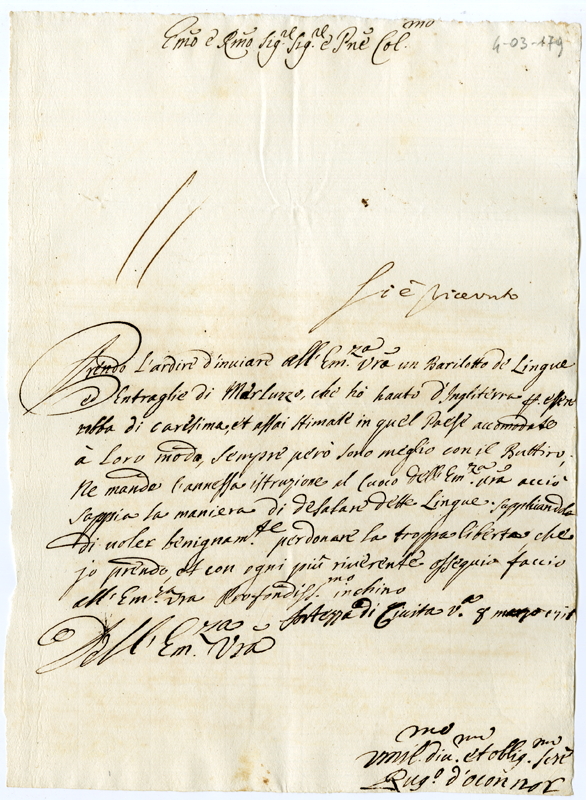 Emo e Rmo Sig.re Sig.re e Pne Col.mo
4-03-179
Si è ricevuto
Prendo l'ardire d'inviare all'Em.za Vra un Bariletto de Lingue
ed Entraglie di Merluzzo, che ho hauto d'Ingliterra p essere
robba di caresima, et assai stimate in quel Paese accomodate
à loro modo, sempre però sono meglio con il Buttiro.
Ne mando l'annessa istruzione al Cuoco dell'Em.za vra acciò
sappia la maniera di desalare dette Lingue. supplicandola
di voler benignam.te perdonare la troppa libertà che
jo prendo, et con ogni più riverente ossequio faccio
all'Em.za Vra Profondiss.mo inchino
Dell'Em.za Vra Fortezza di Civita V.a 8 marzo
mo me me
Umil. div. et oblig. Ser
Rug.o d'oconnor